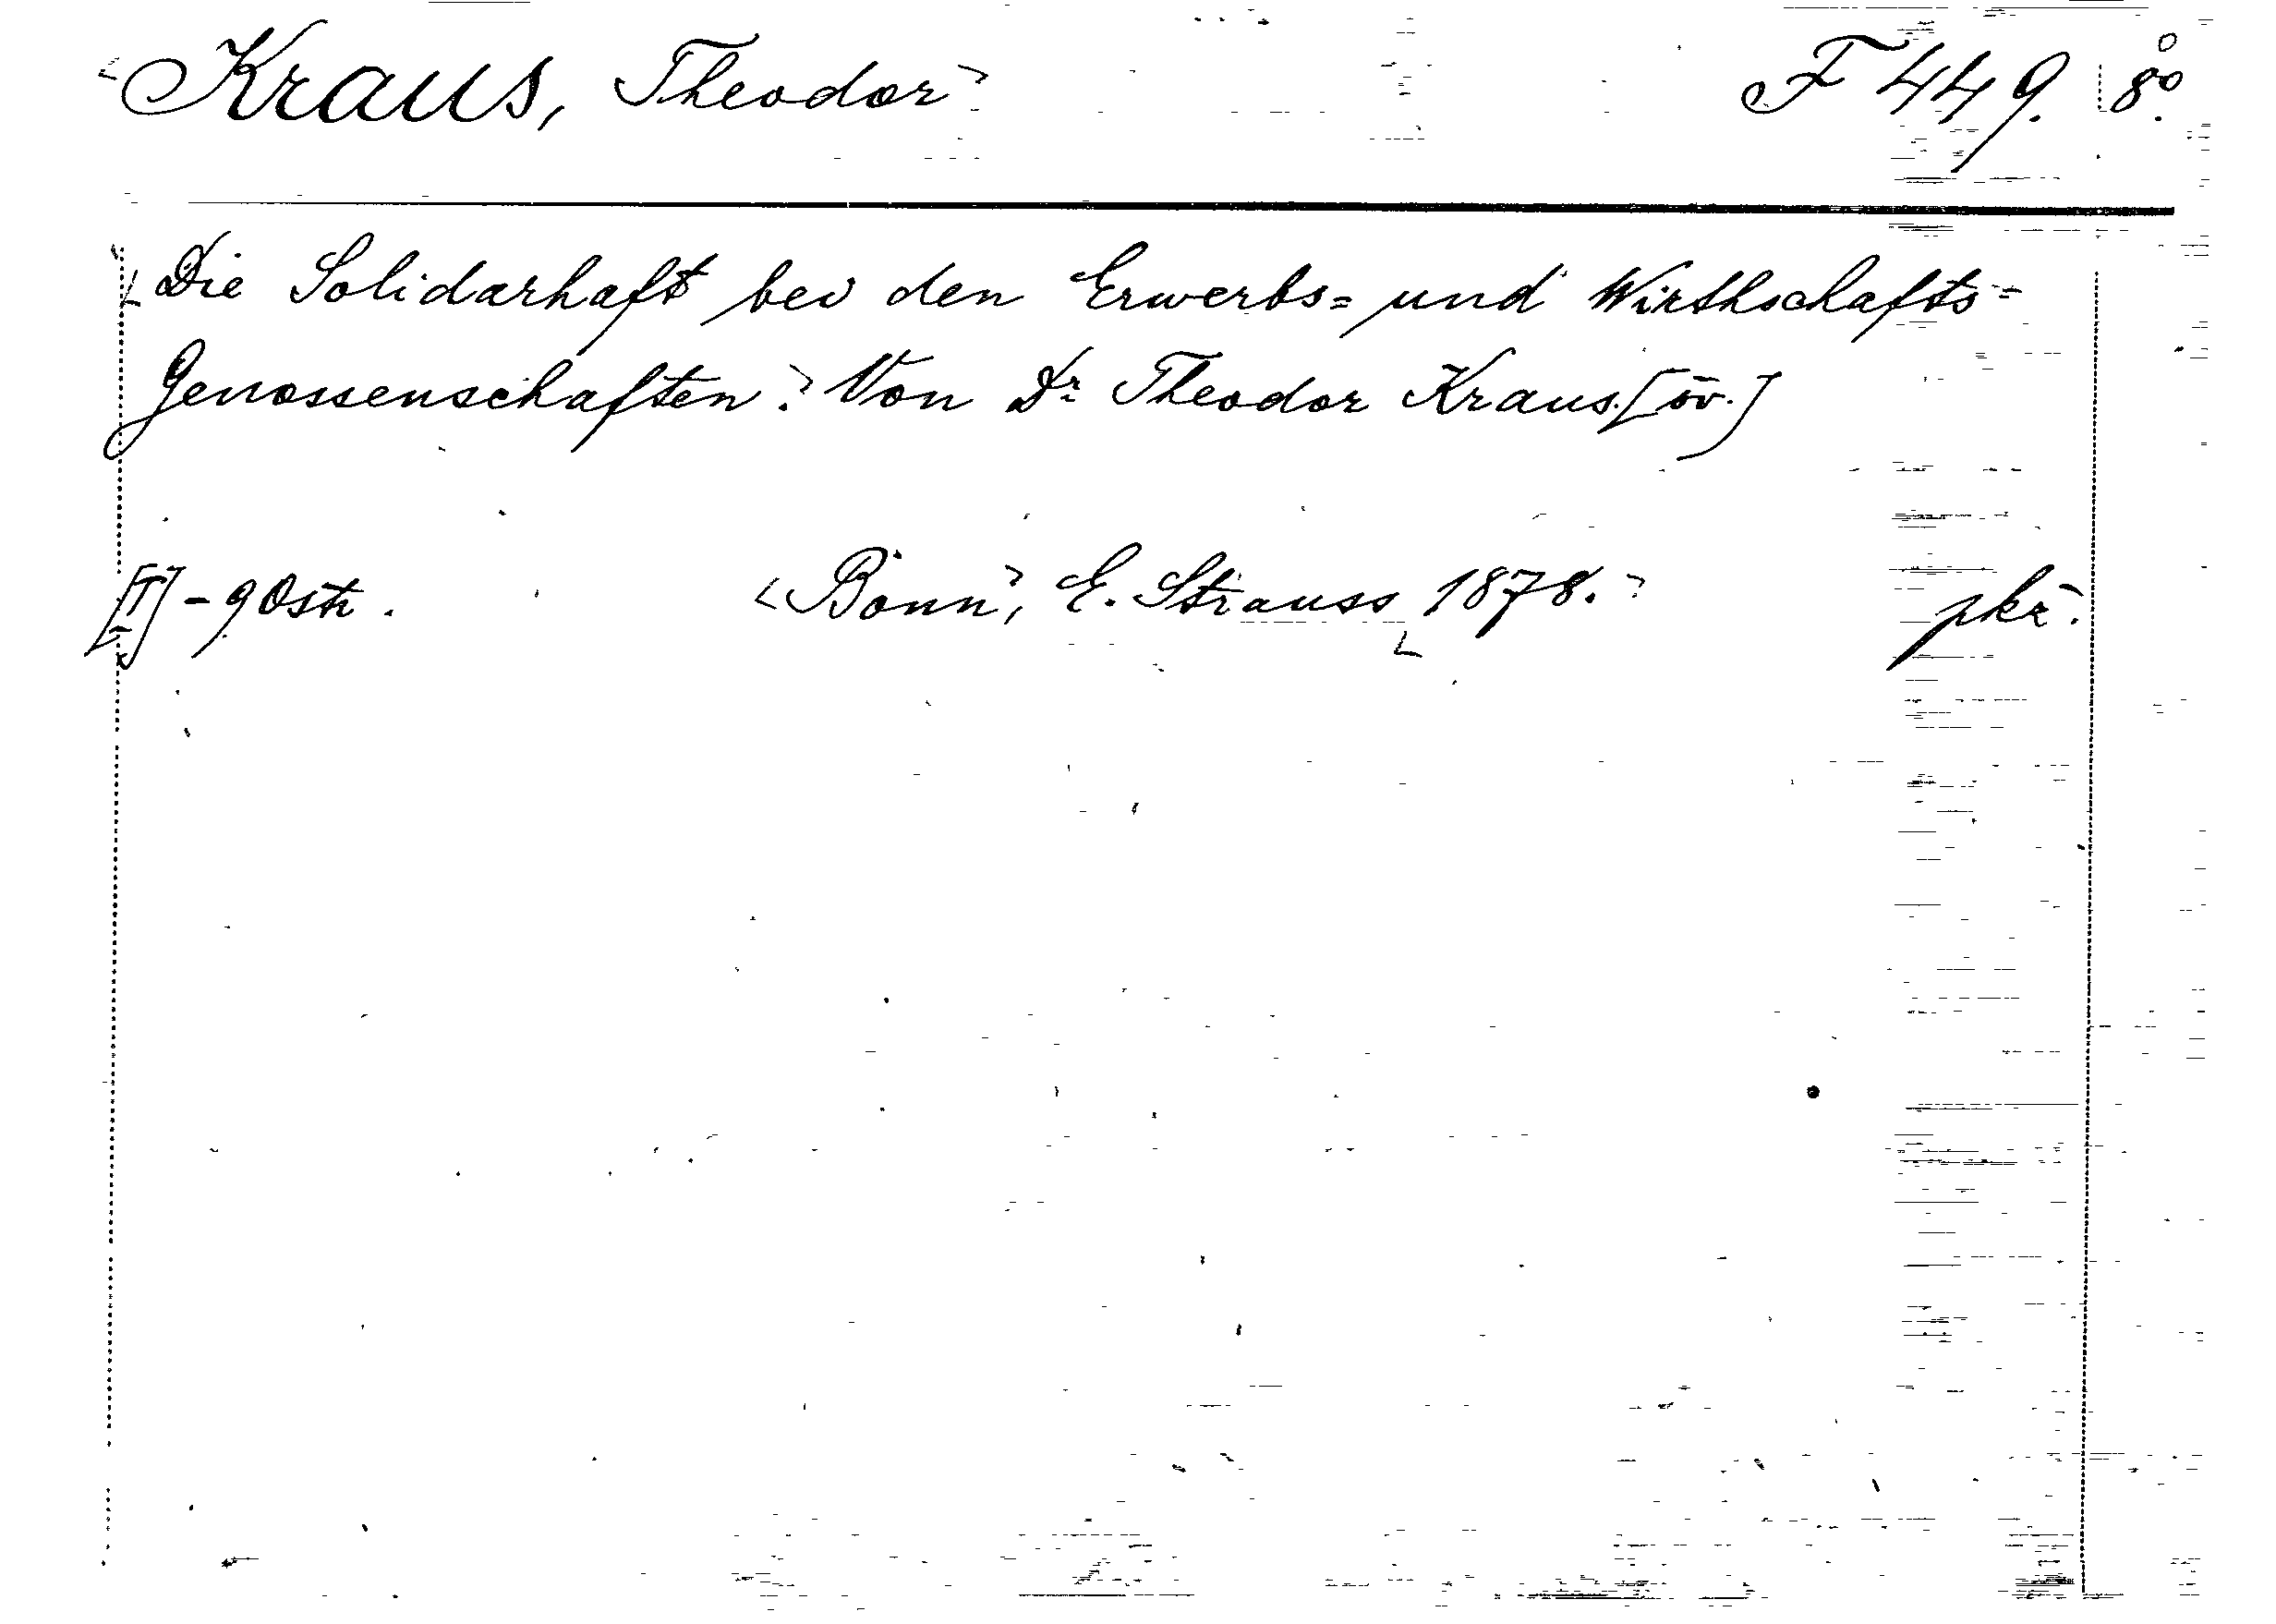 Kraus, Theodor F 449. 8º.
Die Solidarhaft bei den Erwerbs= und Wirthschafts=
Genossenschaften. Von Dr Theodor Kraus. [öv.]
[I] - 90 str. Bonn, E. Strauss 1878. pkz.